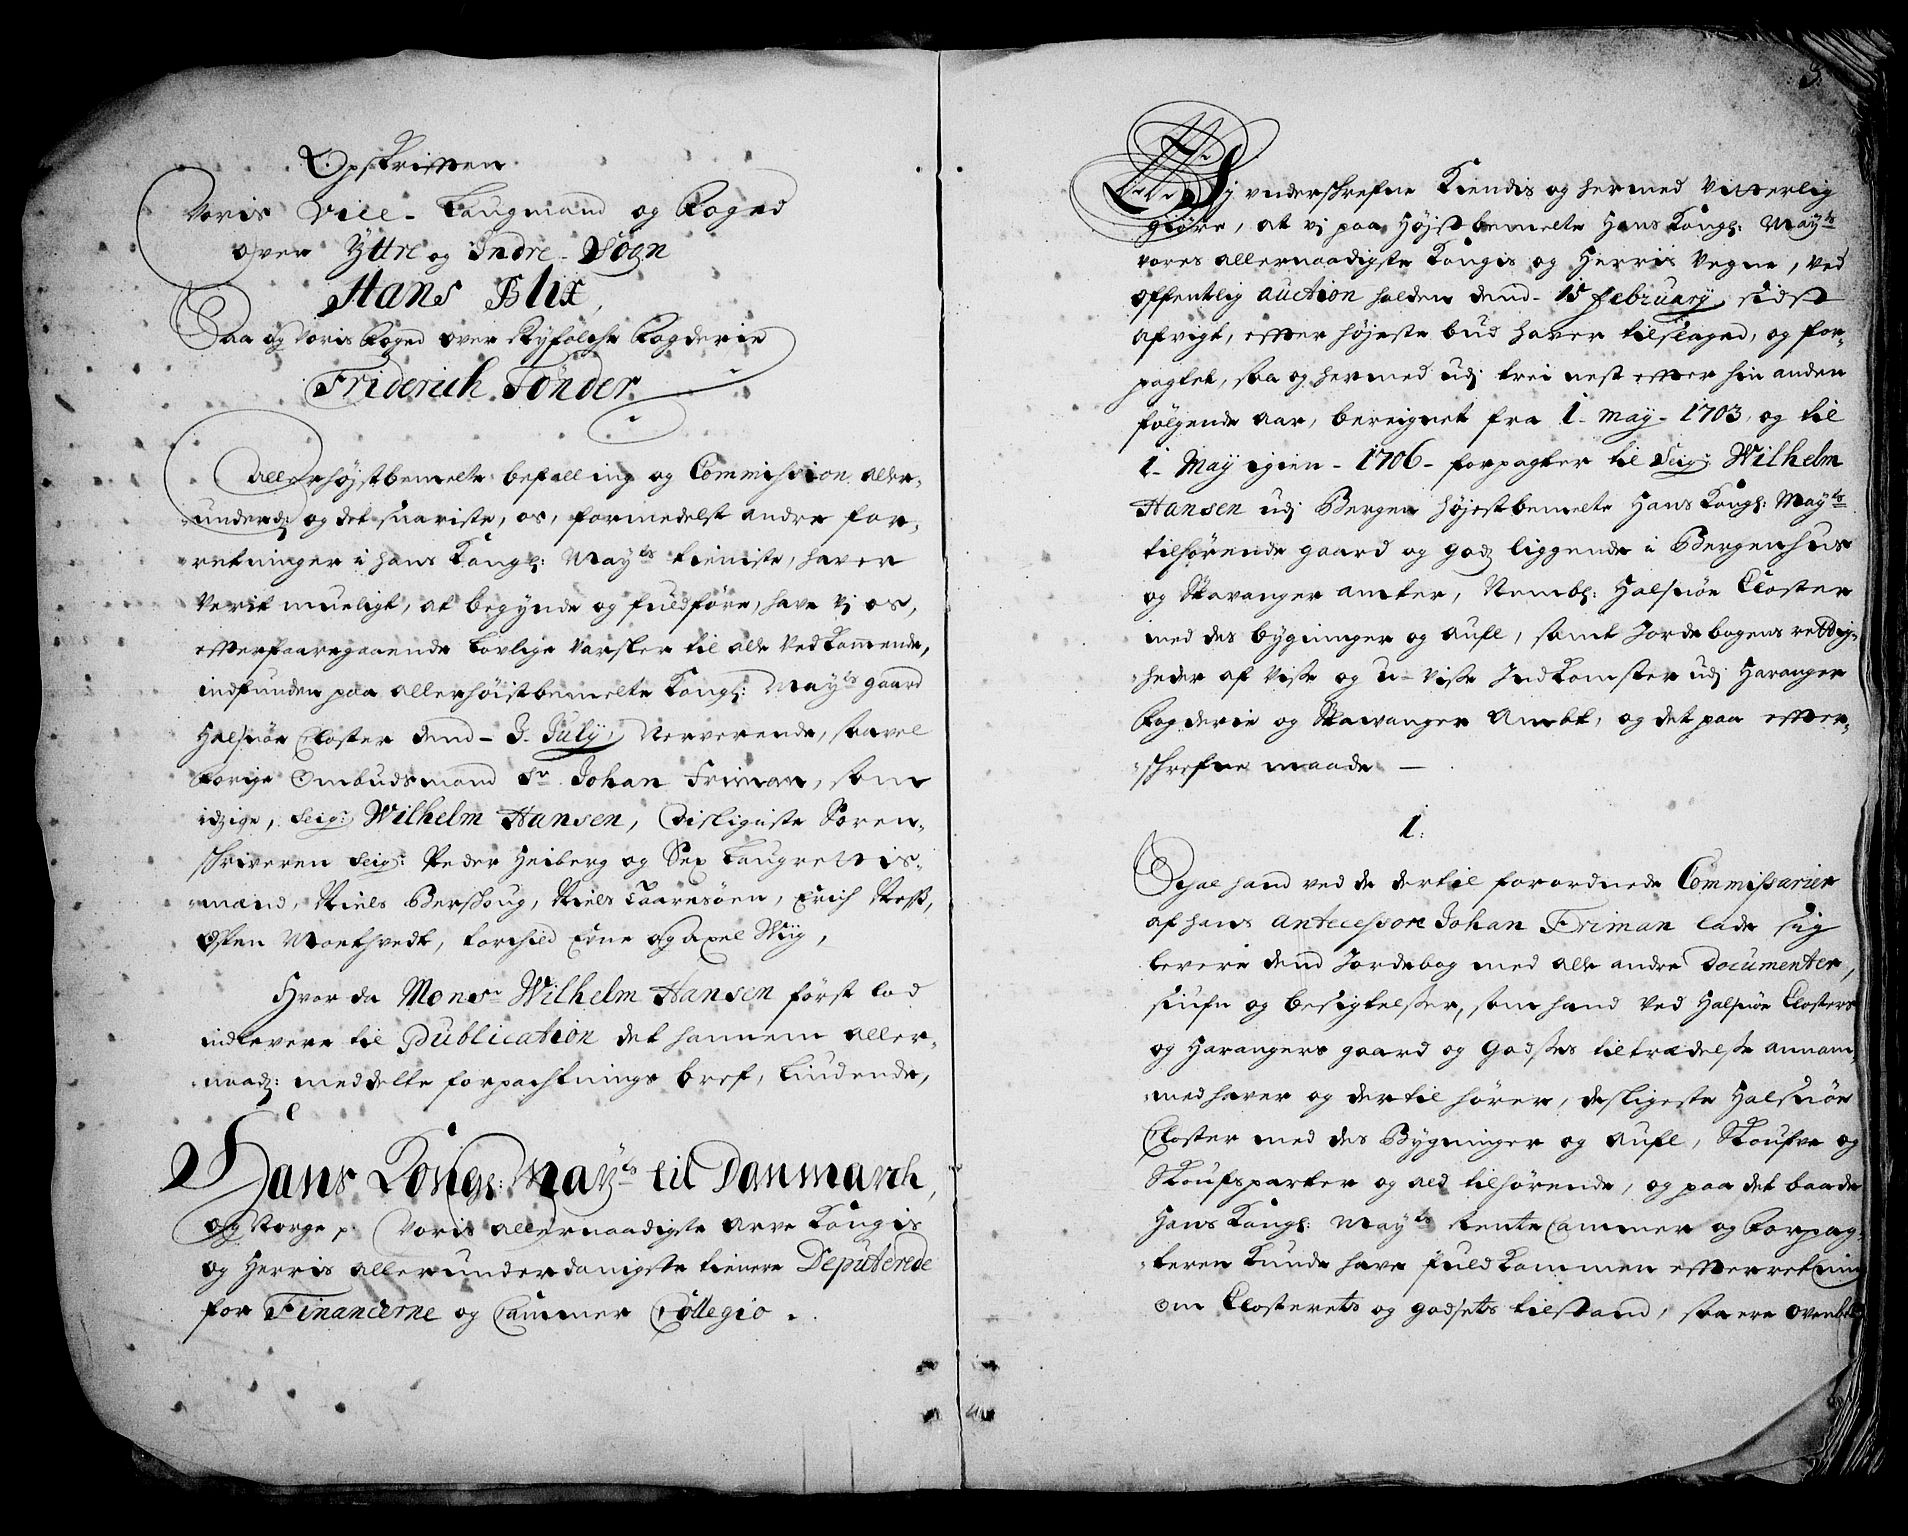 Opskriften
Voris Vice-Laugmand og Foged
over Yttre og Indre-Sogn
Hans Blix,
Saa og Voris Foged over Ryfölche Fogderie
Friderich Tönder.
Allerhöjstbemelte befalling og Commission aller-
underd: og det snariste, os, formedelst andre for-
retninger i hans Kongl: May:ts tieniste, haver
Verit mueligt, at begynde og fuldföre, have Vj os,
effterfaaregaaende Lovlige Varsler til alle Vedkommende,
indfunden paa allerhöistbemelte Kongl: May:ts gaard
Halsnöe Closter dend - 3. July, Nerverende, saavel
forige Ombudsmand Sr. Johan Friman, som
idzige, Seig: Wilhelm Hansen, Disligeste Soren-
schriveren Seig: Peder Heiberg og Sex Laugrettis-
mænd, Niels Bershoug, Niels Taaresöen, Erich Næss,
Östen Moethvedt, Torchild Eÿne og Axel Wiig,
Hvor da Monsr Wilhelm Hansen först lod
indlevere til Publication det hannem aller-
naad: meddelte forpachtnings bref, Liudende,
Hans Kongl: May:ts til Danmarch,
og Norge p. Voris allernaadigste Arve Kongis
og Herris allerunderdanigste tienere Deputerede
for Financerne og Cammer Collegio.
3.
Wj underschrefne Kiendis og hermed Vitterlig
giöre, at vj paa Höjstbemelte Hans Kongl: May:ts
vores allernaadigste Kongis og Herris Vegne, ved
offentlig auction holden dend - 15 february sidst
afvigt, effter höjeste bud haver tilslaged, og for-
pagtet, saa og hermed udj trei nest effter hin anden
fölgende aar, beregnet fra 1. may - 1703, og til
1. May igien - 1706 - forpagter til Seig: Wilhelm
Hansen udj Bergen höjestbemelte Hans Kongl: May:ts
tilhörende gaard og godz liggende i Bergenhus
og Stavanger amter, Nembl: Halsnöe Closter
med des bygninger og aufl, samt Jordebogens rettig-
heder af Visse og u-Visse Indkomster udj Haranger
Fogderie og Stavanger Ambt, og det paa effter-
schrefne maade -
1.
Schal hand ved de dertil forordnede Commissarier
af hans antecessore Johan Friman lade sig
levere dend Jordebog med alle andre Documenter,
siufn og besigtelser, som hand ved Halsnöe Closters
og Harangers gaard og Godses tiltrædelse annam-
med haver og dertil hörer, desligeste Halsnöe
Closter med des Bygninger og aufl, Skoufve og
Skoufsparter og ald tilhörende, og paa det baade
Hans Kongl: May:ts Rente Cammer og Forpag-
teren Kunde have fuldkommen effterretning
om Closterets og godsets tilstand, saa ere ovenbte